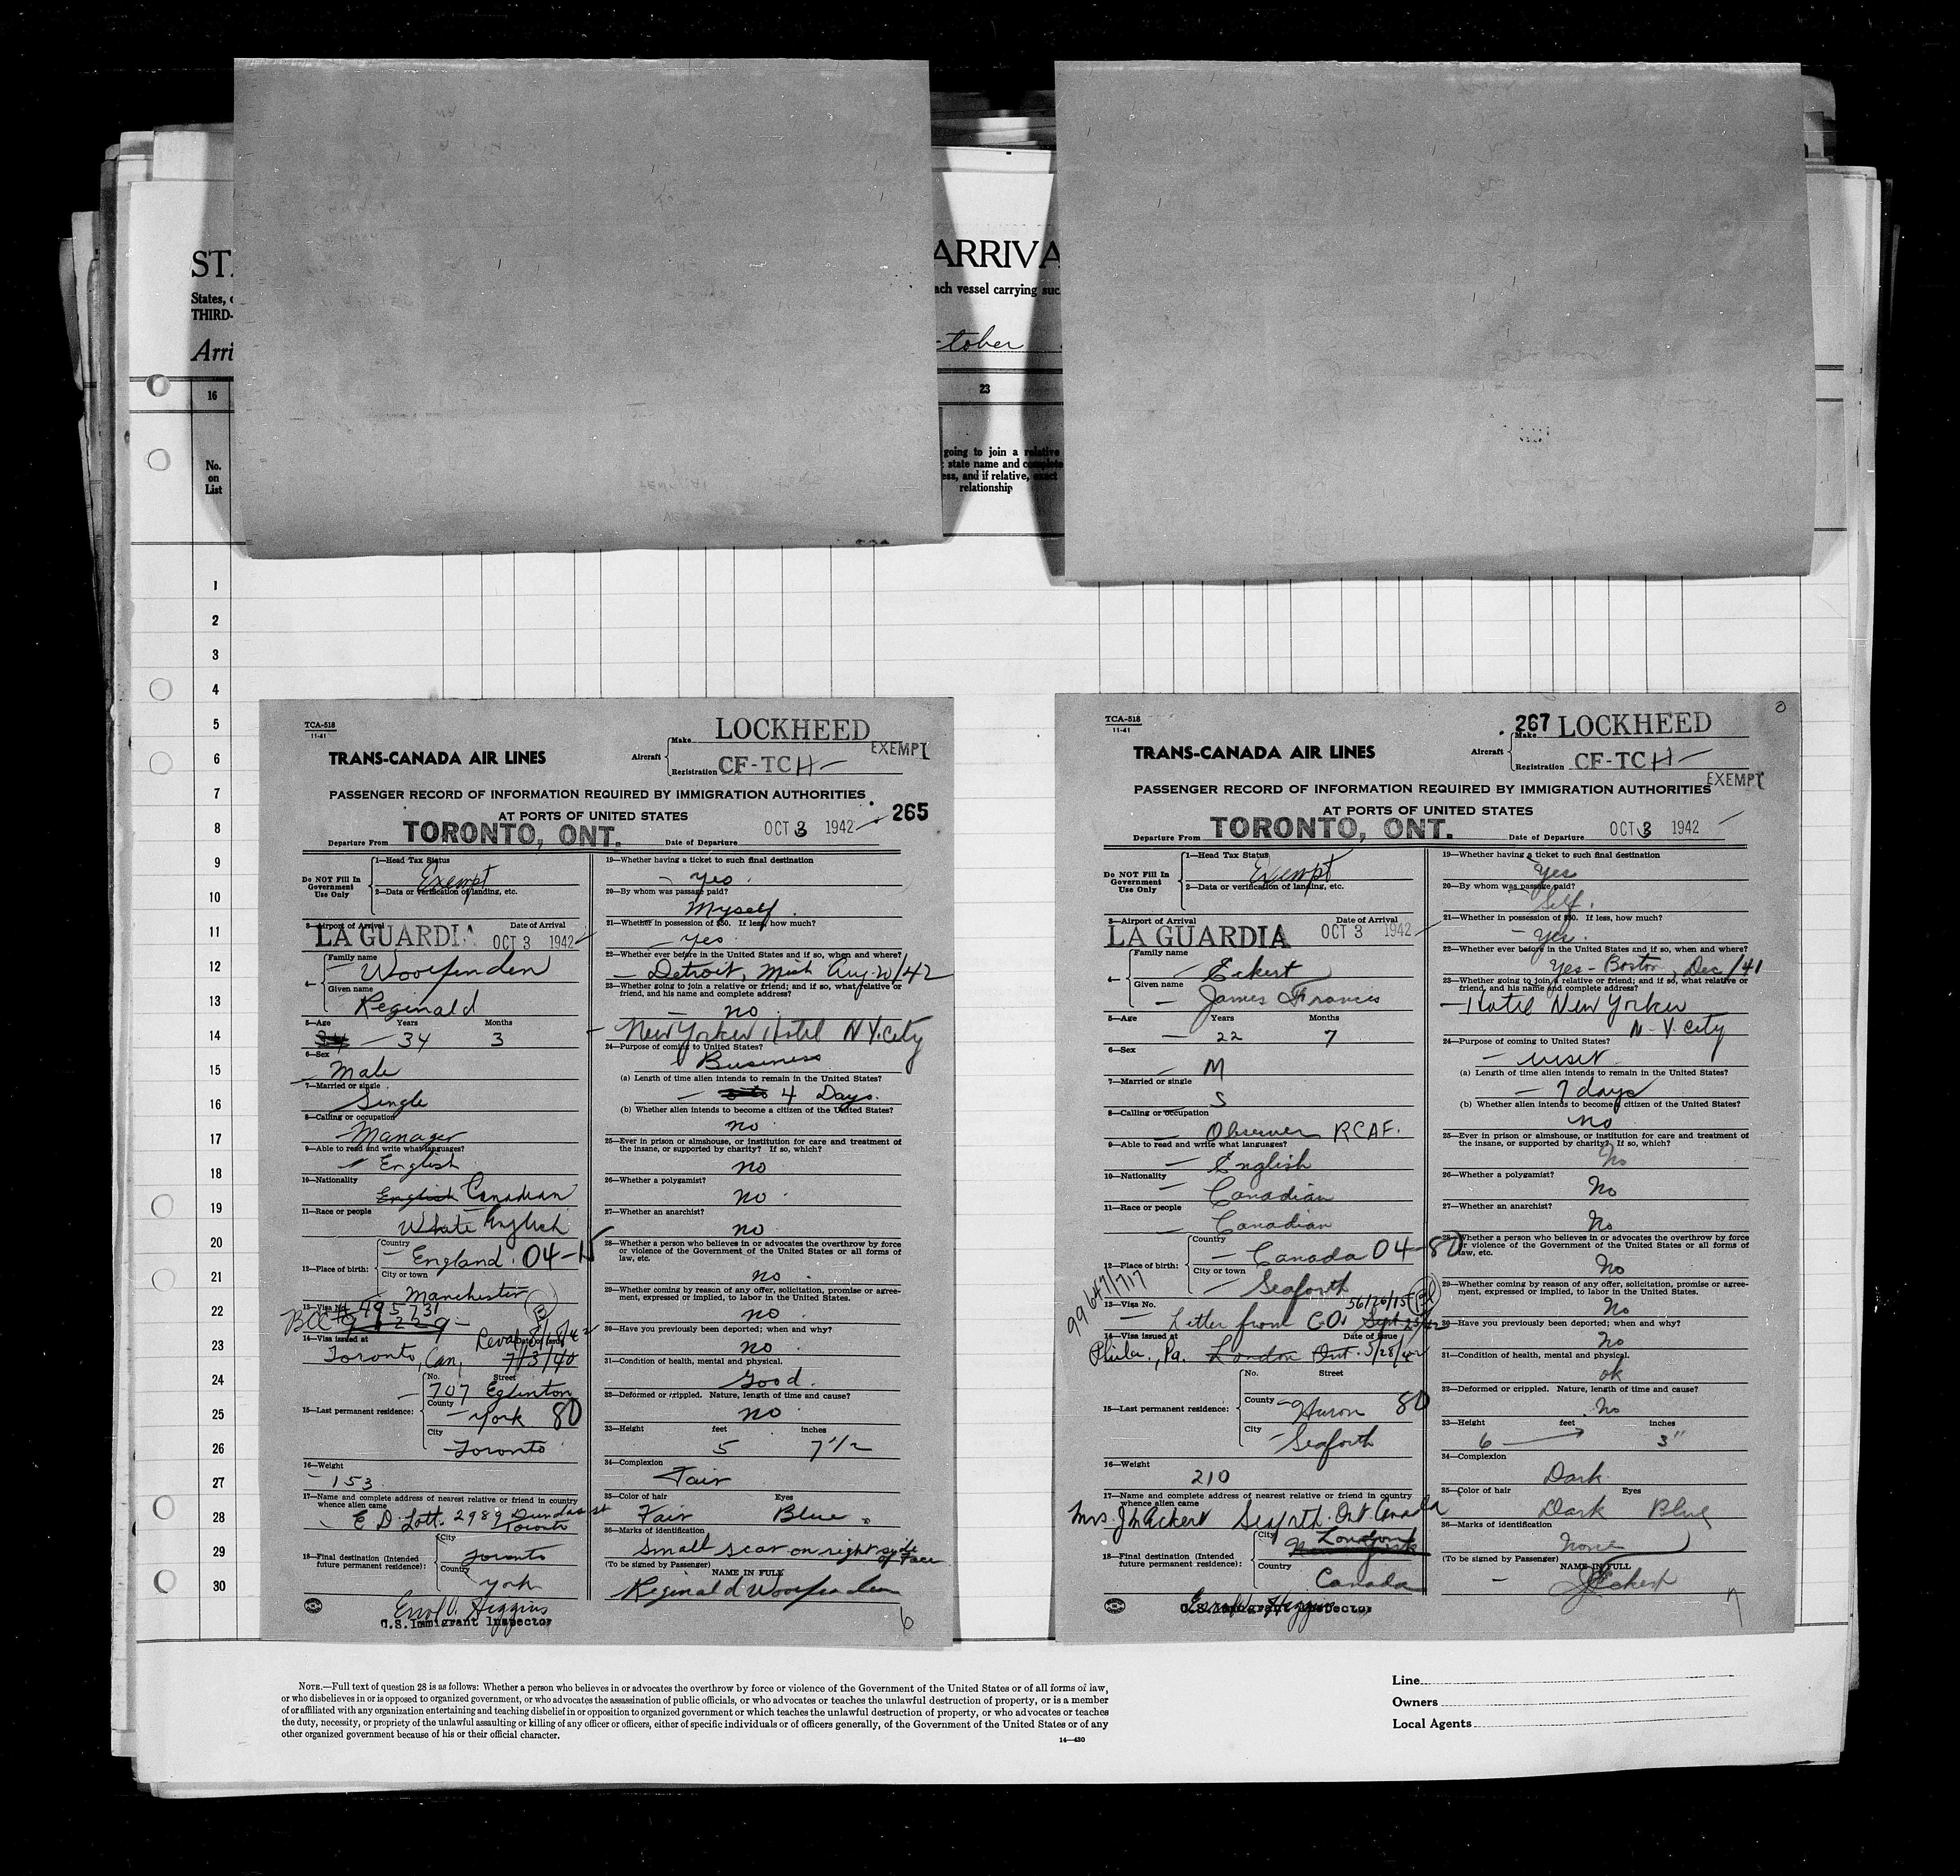 ST
ARRIVA
States,
THIRD-
ach vessel carrying suc
Arri
tober
16
23
No.
on
List
going to join a relative
state name and complete
ess, and if relative, exact
relationship
1
2
3
4
5
6
7
8
9
10
11
12
13
14
15
16
17
18
19
20
21
22
23
24
25
26
27
28
29
30
TCA-518
11-41
TRANS-CANADA AIR LINES
Aircraft
Make LOCKHEED
EXEMPT
Registration CF-TCH
PASSENGER RECORD OF INFORMATION REQUIRED BY IMMIGRATION AUTHORITIES
AT PORTS OF UNITED STATES
265
Departure From TORONTO, ONT. Date of Departure OCT 3 1942
Do NOT Fill In
Government
Use Only
1—Head Tax Status
Exempt
2—Data or verification of landing, etc.
3—Airport of Arrival Date of Arrival
LA GUARDIA OCT 3 1942
4—
Family name
Woolfenden
Given name
Reginald
5—Age Years Months
34 3
6—Sex
Male
7—Married or single
Single
8—Calling or occupation
Manager
9—Able to read and write what languages?
English
10—Nationality
English Canadian
11—Race or people
White English
12—Place of birth:
Country
England. 04-15
City or town
Manchester
13—Visa No. 495731
BCC
14—Visa issued at Date of Issue
Toronto, Can. 7/3/40
15—Last permanent residence:
No. Street
707 Eglinton
County
York 80
City
Toronto
16—Weight
153
17—Name and complete address of nearest relative or friend in country
whence alien came
E D Lott. 2989 Dundas st
Toronto
18—Final destination (Intended
future permanent residence):
City
Toronto
County
York
Errol. Higgins
U.S. Immigrant Inspector
19—Whether having a ticket to such final destination
yes
20—By whom was passage paid?
Myself.
21—Whether in possession of $50. If less, how much?
yes
22—Whether ever before in the United States and if so, when and where?
Detroit, Mich Aug 20/42
23—Whether going to join a relative or friend; and if so, what relative or
friend, and his name and complete address?
no
New Yorker Hotel N.Y. City
24—Purpose of coming to United States?
Business
(a) Length of time alien intends to remain in the United States?
4 Days.
(b) Whether alien intends to become a citizen of the United States?
no
25—Ever in prison or almshouse, or institution for care and treatment of
the insane, or supported by charity? If so, which?
no
26—Whether a polygamist?
no
27—Whether an anarchist?
no
28—Whether a person who believes in or advocates the overthrow by force
or violence of the Government of the United States or all forms of
law, etc.
no
29—Whether coming by reason of any offer, solicitation, promise or agree-
ment, expressed or implied, to labor in the United States.
no
30—Have you previously been deported; when and why?
no
31—Condition of health, mental and physical.
Good.
32—Deformed or crippled. Nature, length of time and cause?
no
33—Height feet inches
5 7 1/2
34—Complexion
Fair
35—Color of hair Eyes
Fair Blue
36—Marks of identification
Small scar on right side
of Face
(To be signed by Passenger) NAME IN FULL
Reginald Woolfenden
6
TCA-518
11-41
TRANS-CANADA AIR LINES
Aircraft
267
Make LOCKHEED
Registration CF-TCH
EXEMPT
PASSENGER RECORD OF INFORMATION REQUIRED BY IMMIGRATION AUTHORITIES
AT PORTS OF UNITED STATES
Departure From TORONTO, ONT. Date of Departure OCT 3 1942
Do NOT Fill In
Government
Use Only
1—Head Tax Status
Exempt
2—Data or verification of landing, etc.
3—Airport of Arrival Date of Arrival
LA GUARDIA OCT 3 1942
4—
Family name
Eckert
Given name
James Francis
5—Age Years Months
22 7
6—Sex
M
7—Married or single
S
8—Calling or occupation
Observer RCAF.
9—Able to read and write what languages?
English
10—Nationality
Canadian
11—Race or people
Canadian
12—Place of birth:
Country
Canada 04-80
City or town
Seaforth
99647/717
56/26/15
13—Visa No.
Letter from C.O. Sept
14—Visa issued at Date of Issue
Phila., Pa. London Ont. 5/28/42
15—Last permanent residence:
No. Street
County
Huron 80
City
Seaforth
16—Weight
210
17—Name and complete address of nearest relative or friend in country
whence alien came
Mrs. Eckert Seaforth. Ont Canada
18—Final destination (Intended
future permanent residence):
City
London
Country
Canada
Errol. Higgins
U.S. Immigrant Inspector
19—Whether having a ticket to such final destination
Yes
20—By whom was passage paid?
Self.
21—Whether in possession of $50. If less, how much?
Yes.
22—Whether ever before in the United States and if so, when and where?
Yes - Boston, Dec/41
23—Whether going to join a relative or friend; and if so, what relative or
friend, and his name and complete address?
Hotel New Yorker
N.Y. City
24—Purpose of coming to United States?
visit
(a) Length of time alien intends to remain in the United States?
7 days
(b) Whether alien intends to become a citizen of the United States?
no
25—Ever in prison or almshouse, or institution for care and treatment of
the insane, or supported by charity? If so, which?
No
26—Whether a polygamist?
No
27—Whether an anarchist?
No
28—Whether a person who believes in or advocates the overthrow by force
or violence of the Government of the United States or all forms of
law, etc.
No
29—Whether coming by reason of any offer, solicitation, promise or agree-
ment, expressed or implied, to labor in the United States.
No
30—Have you previously been deported; when and why?
No
31—Condition of health, mental and physical.
ok
32—Deformed or crippled. Nature, length of time and cause?
No
33—Height feet inches
6 3"
34—Complexion
Dark
35—Color of hair Eyes
Dark Blue
36—Marks of identification
None
(To be signed by Passenger) NAME IN FULL
JEckert
7
NOTE.—Full text of question 28 is as follows: Whether a person who believes in or advocates the overthrow by force or violence of the Government of the United States or of all forms of law,
or who disbelieves in or is opposed to organized government, or who advocates the assassination of public officials, or who advocates or teaches the unlawful destruction of property, or is a member
of or affiliated with any organization entertaining and teaching disbelief in or opposition to organized government or which teaches the unlawful destruction of property, or who advocates or teaches
the duty, necessity, or propriety of the unlawful assaulting or killing of any officer or officers, either of specific individuals or of officers generally, of the Government of the United States or of any
other organized government because of his or their official character.
14—430
Line
Owners
Local Agents